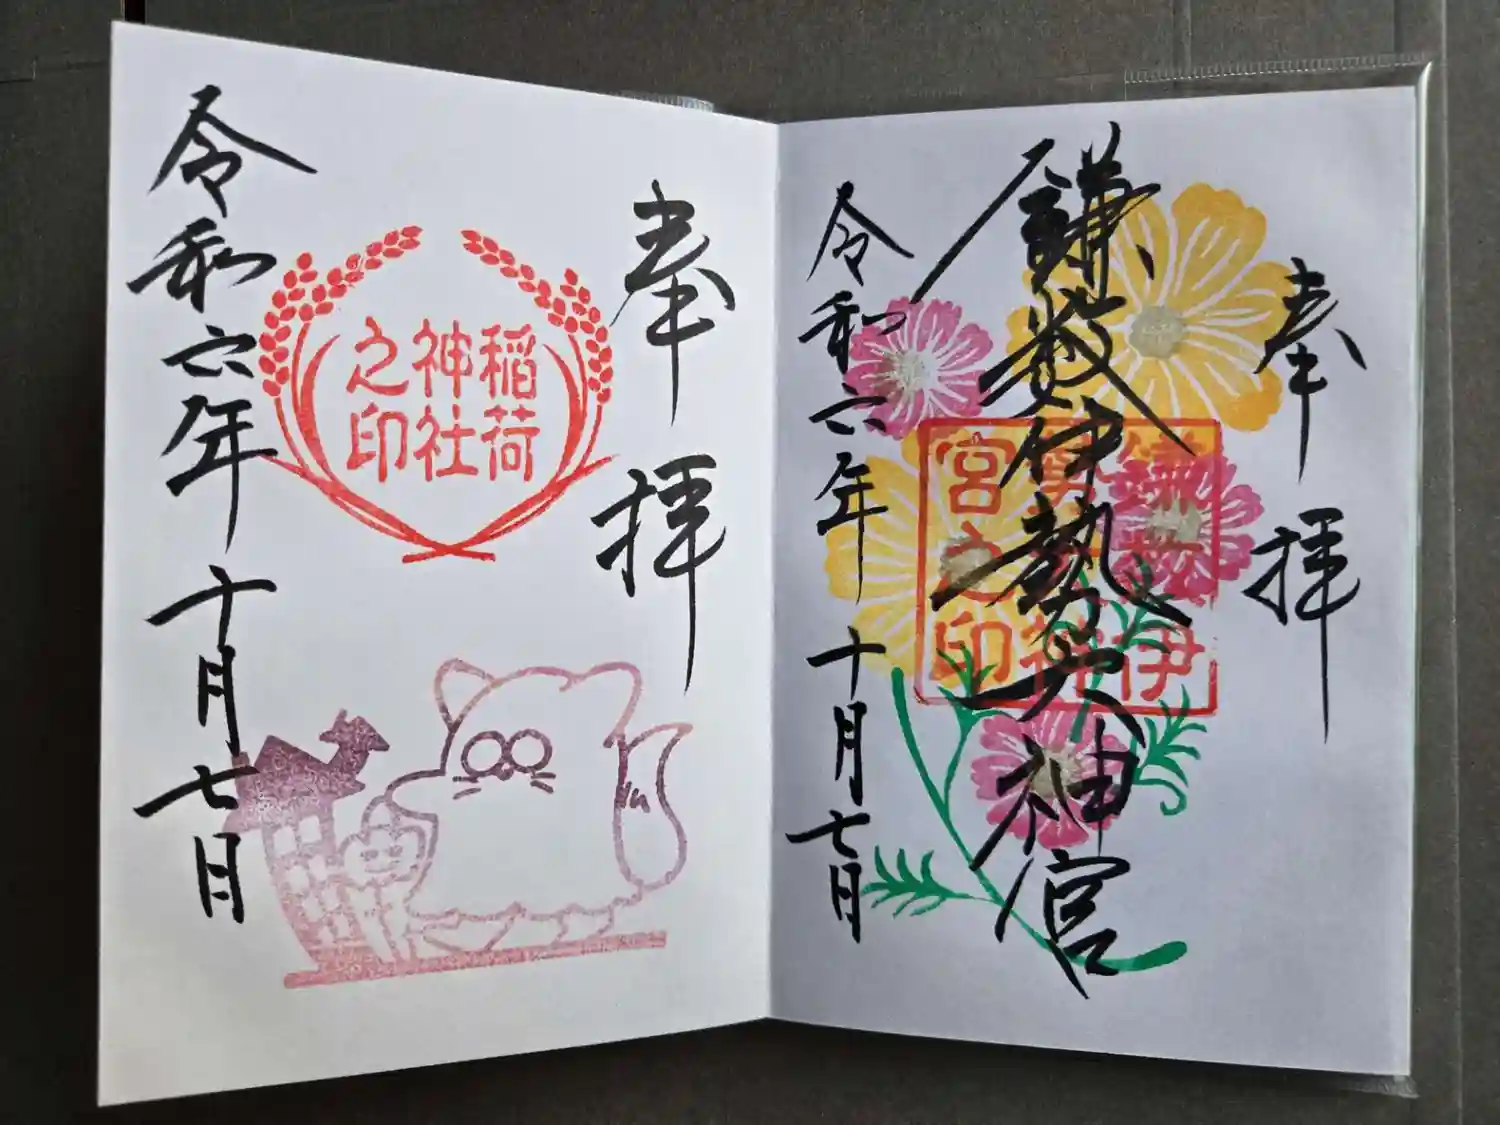 奉拝
鎌数伊勢大神宮
伊
神
宮之印
令和六年十月七日
奉拝
稲荷
神社
之印
令和六年十月七日